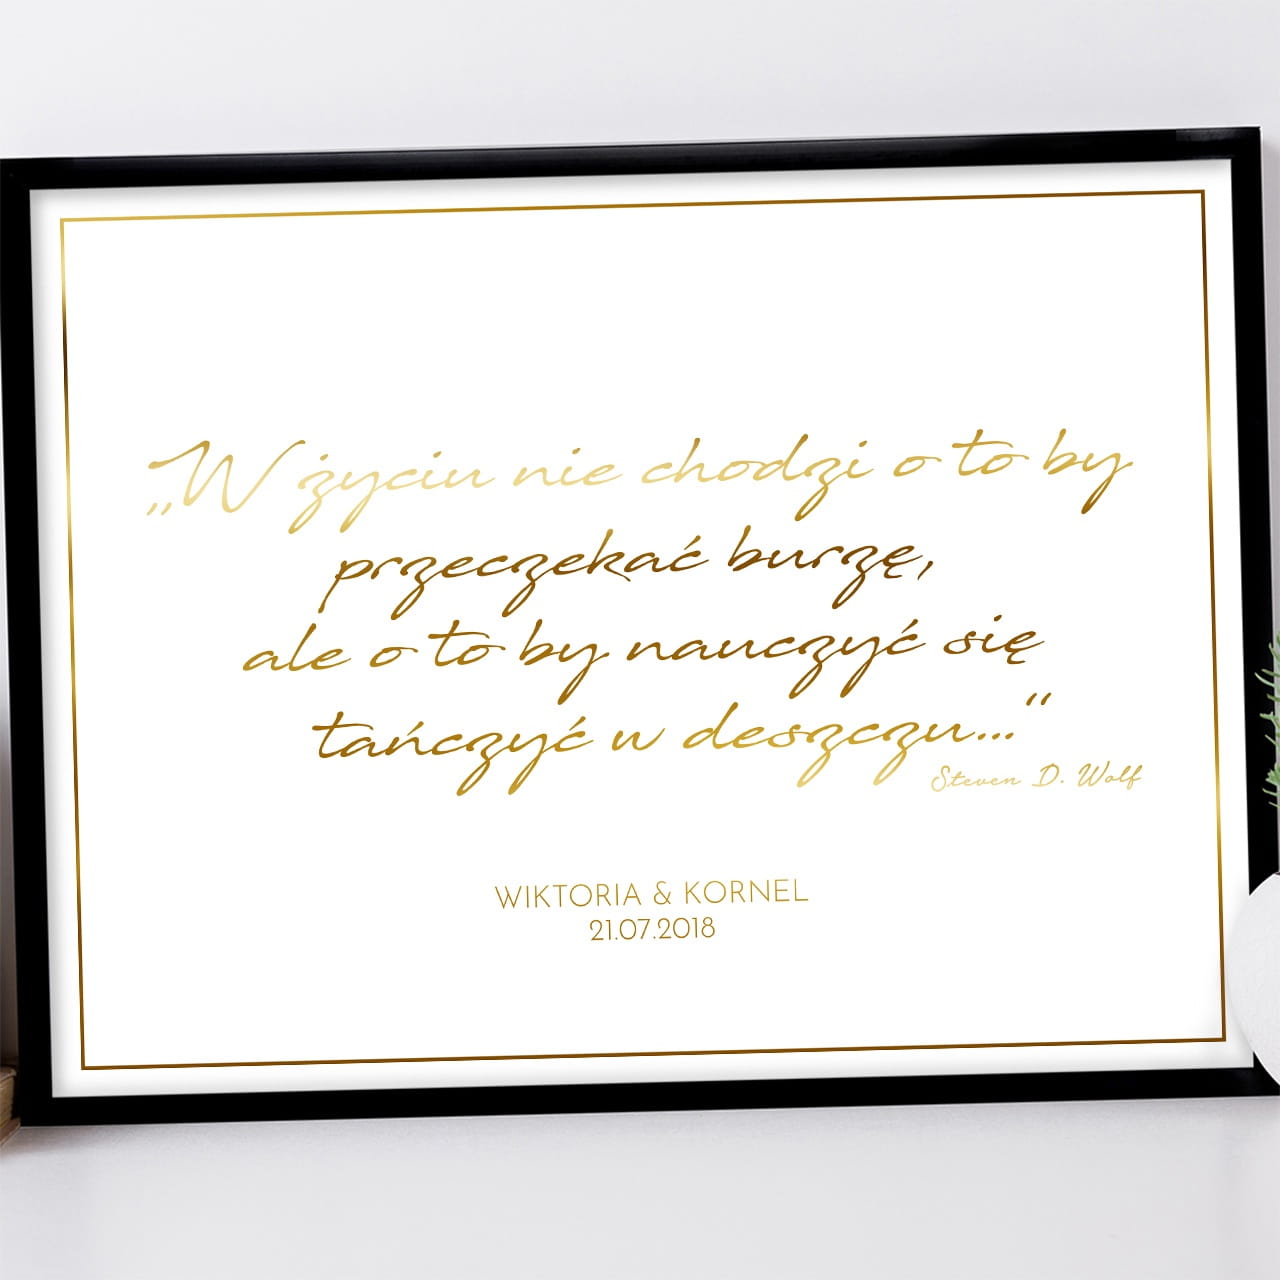 „W życiu nie chodzi o to by
przeczekać burzę,
ale o to by nauczyć się
tańczyć w deszczu...“
Steven D. Wolf
WIKTORIA & KORNEL
21.07.2018